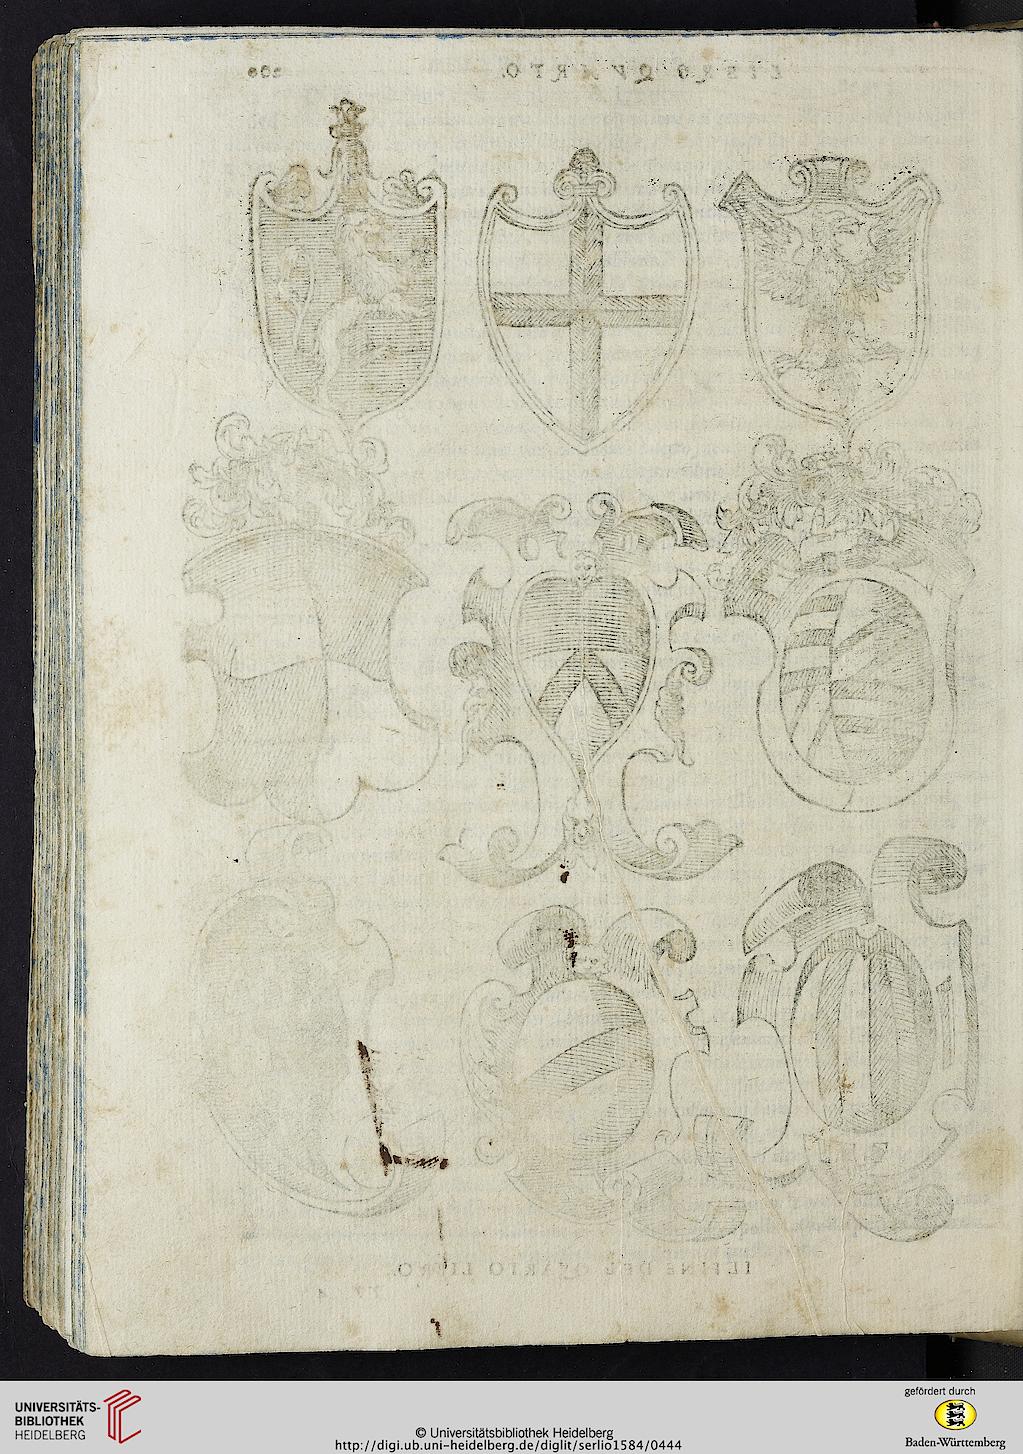 LIBRO QVARTO. 208
IL FINE DEL QVARTO LIBRO.
UNIVERSITÄTS-
BIBLIOTHEK
HEIDELBERG
© Universitätsbibliothek Heidelberg
http://digi.ub.uni-heidelberg.de/diglit/serlio1584/0444
gefördert durch
Baden-Württemberg